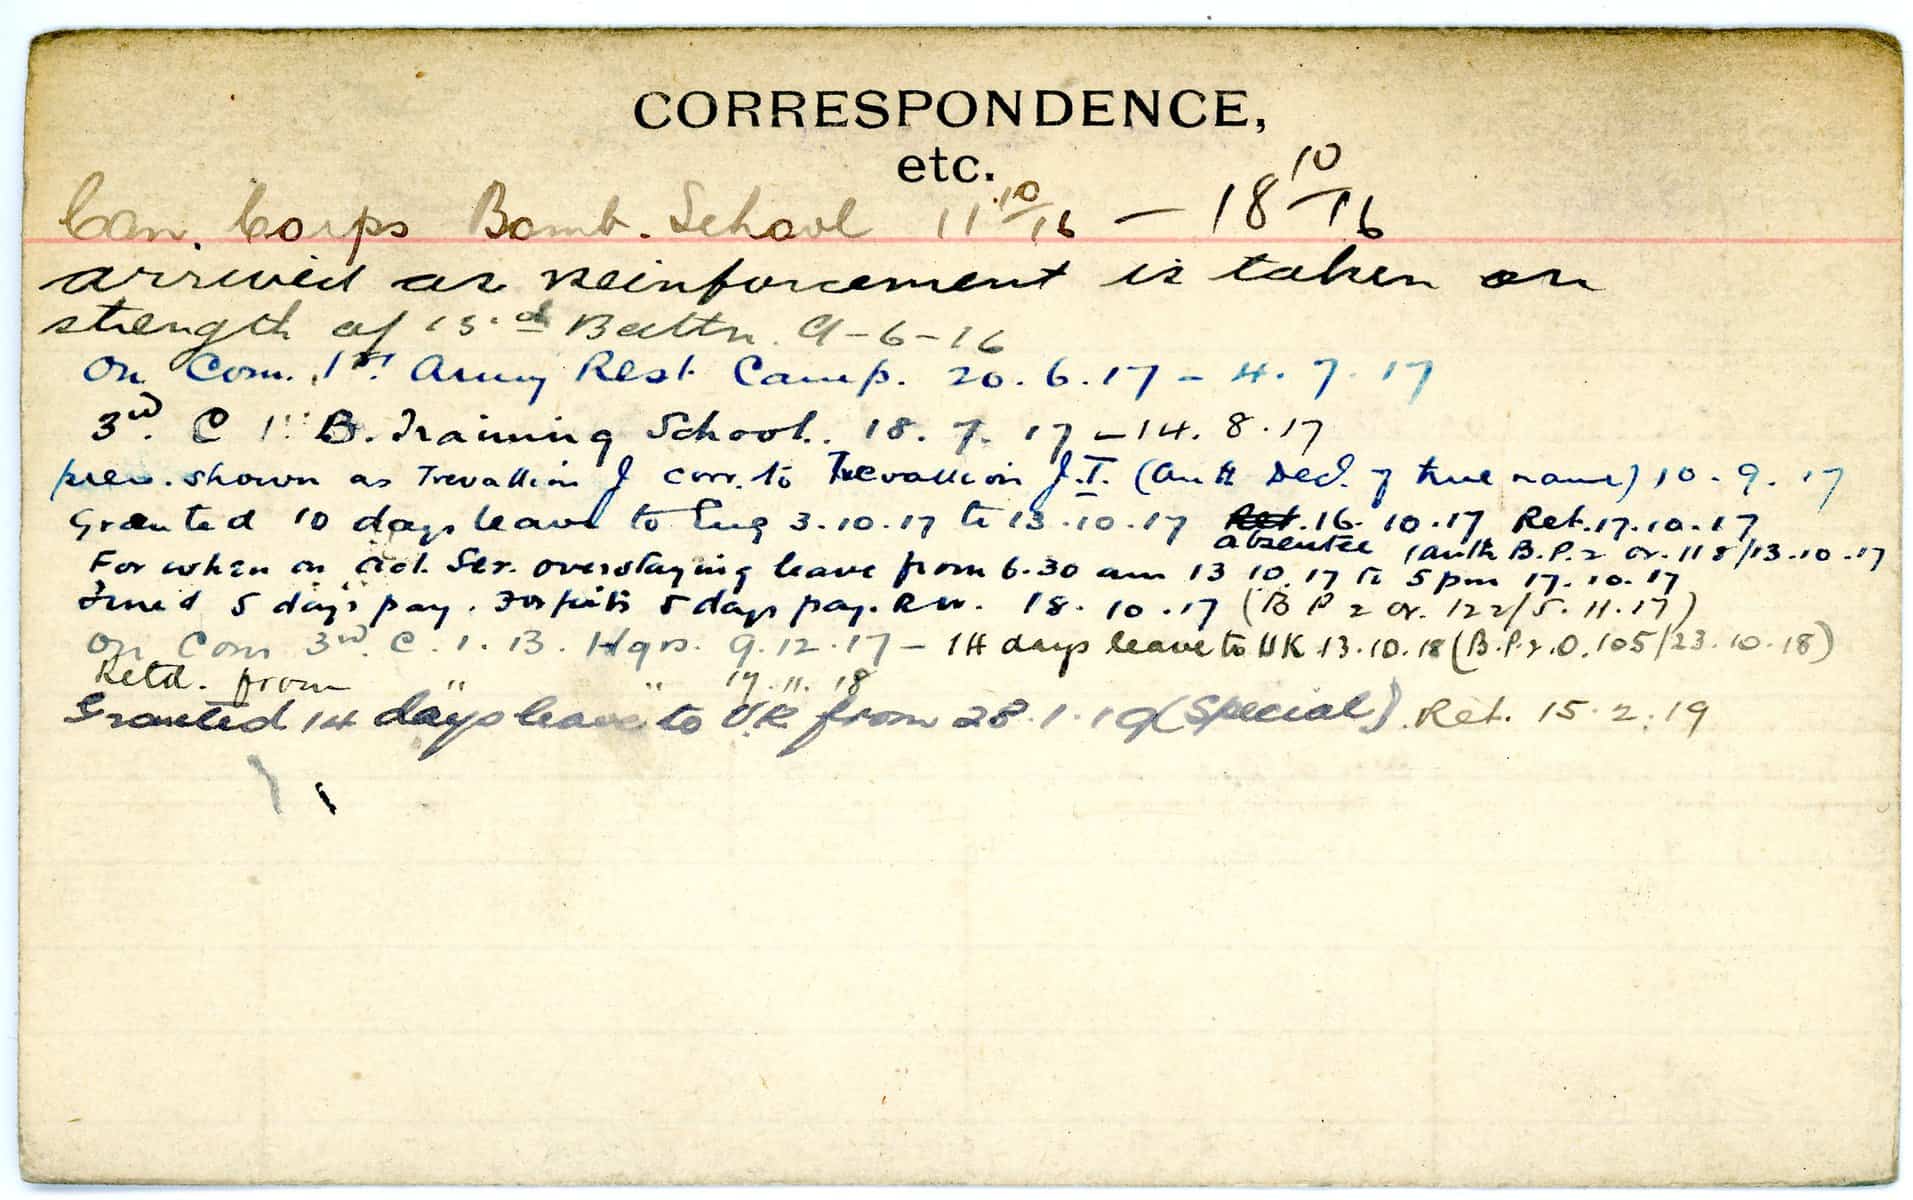 CORRESPONDENCE,
etc.
Can. Corps Bomb. School 11 10/16 — 18 10/16
arrived as reinforcement is taken on
strength of Battn. 9-6-16
On Com. 1st Army Rest Camp. 20.6.17 - 4.7.17
3rd. C I B. Training School. 18.7.17 - 14.8.17
prev. shown as Trevallion J corr. to Trevallion J.I. (Auth Decl. of true name) 10.9.17
Granted 10 days leave to Eng 3.10.17 to 13.10.17 Ret. 16.10.17 Ret. 17.10.17
absentee (auth B.P.2 or. 118/13.10.17
For when on Act. Ser. overstaying leave from 6.30 am 13 10.17 to 5 pm 17.10.17
fined 5 days pay. Forfeits 5 days pay. R.W. 18.10.17 (B P 2 or. 122/5.11.17)
On Com 3rd. C.I.B. Hqrs. 9.12.17 - 14 days leave to UK 13.10.18 (B.P.2.O.105/23.10.18)
Retd. from " " 17.11.18
Granted 14 days leave to U.K. from 28.1.19 (Special). Ret. 15.2.19